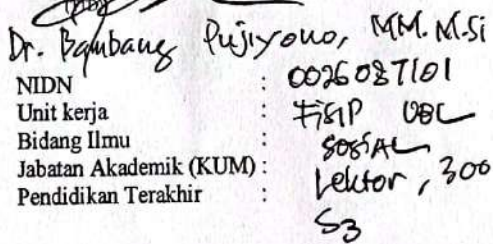 Dr. Bambang Pujiyono, MM. M.Si
NIDN : 0026087101
Unit kerja : FISIP UBL
Bidang Ilmu : SOSIAL
Jabatan Akademik (KUM) : Lektor, 300
Pendidikan Terakhir : S3